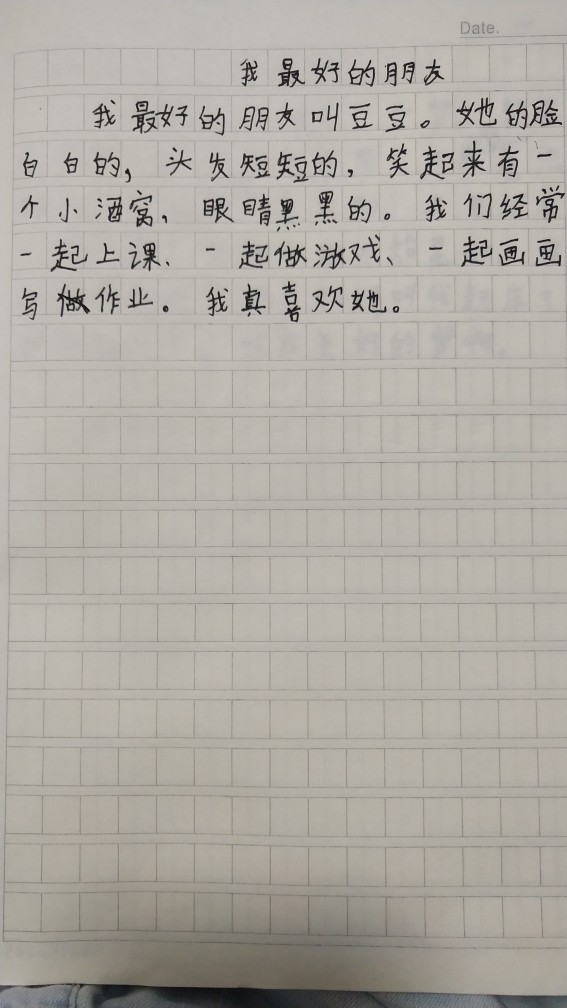 Date.
我最好的朋友
我最好的朋友叫豆豆。她的脸
白白的，头发短短的，笑起来有一
个小酒窝、眼睛黑黑的。我们经常
一起上课、一起做游戏、一起画画
写做作业。我真喜欢她。